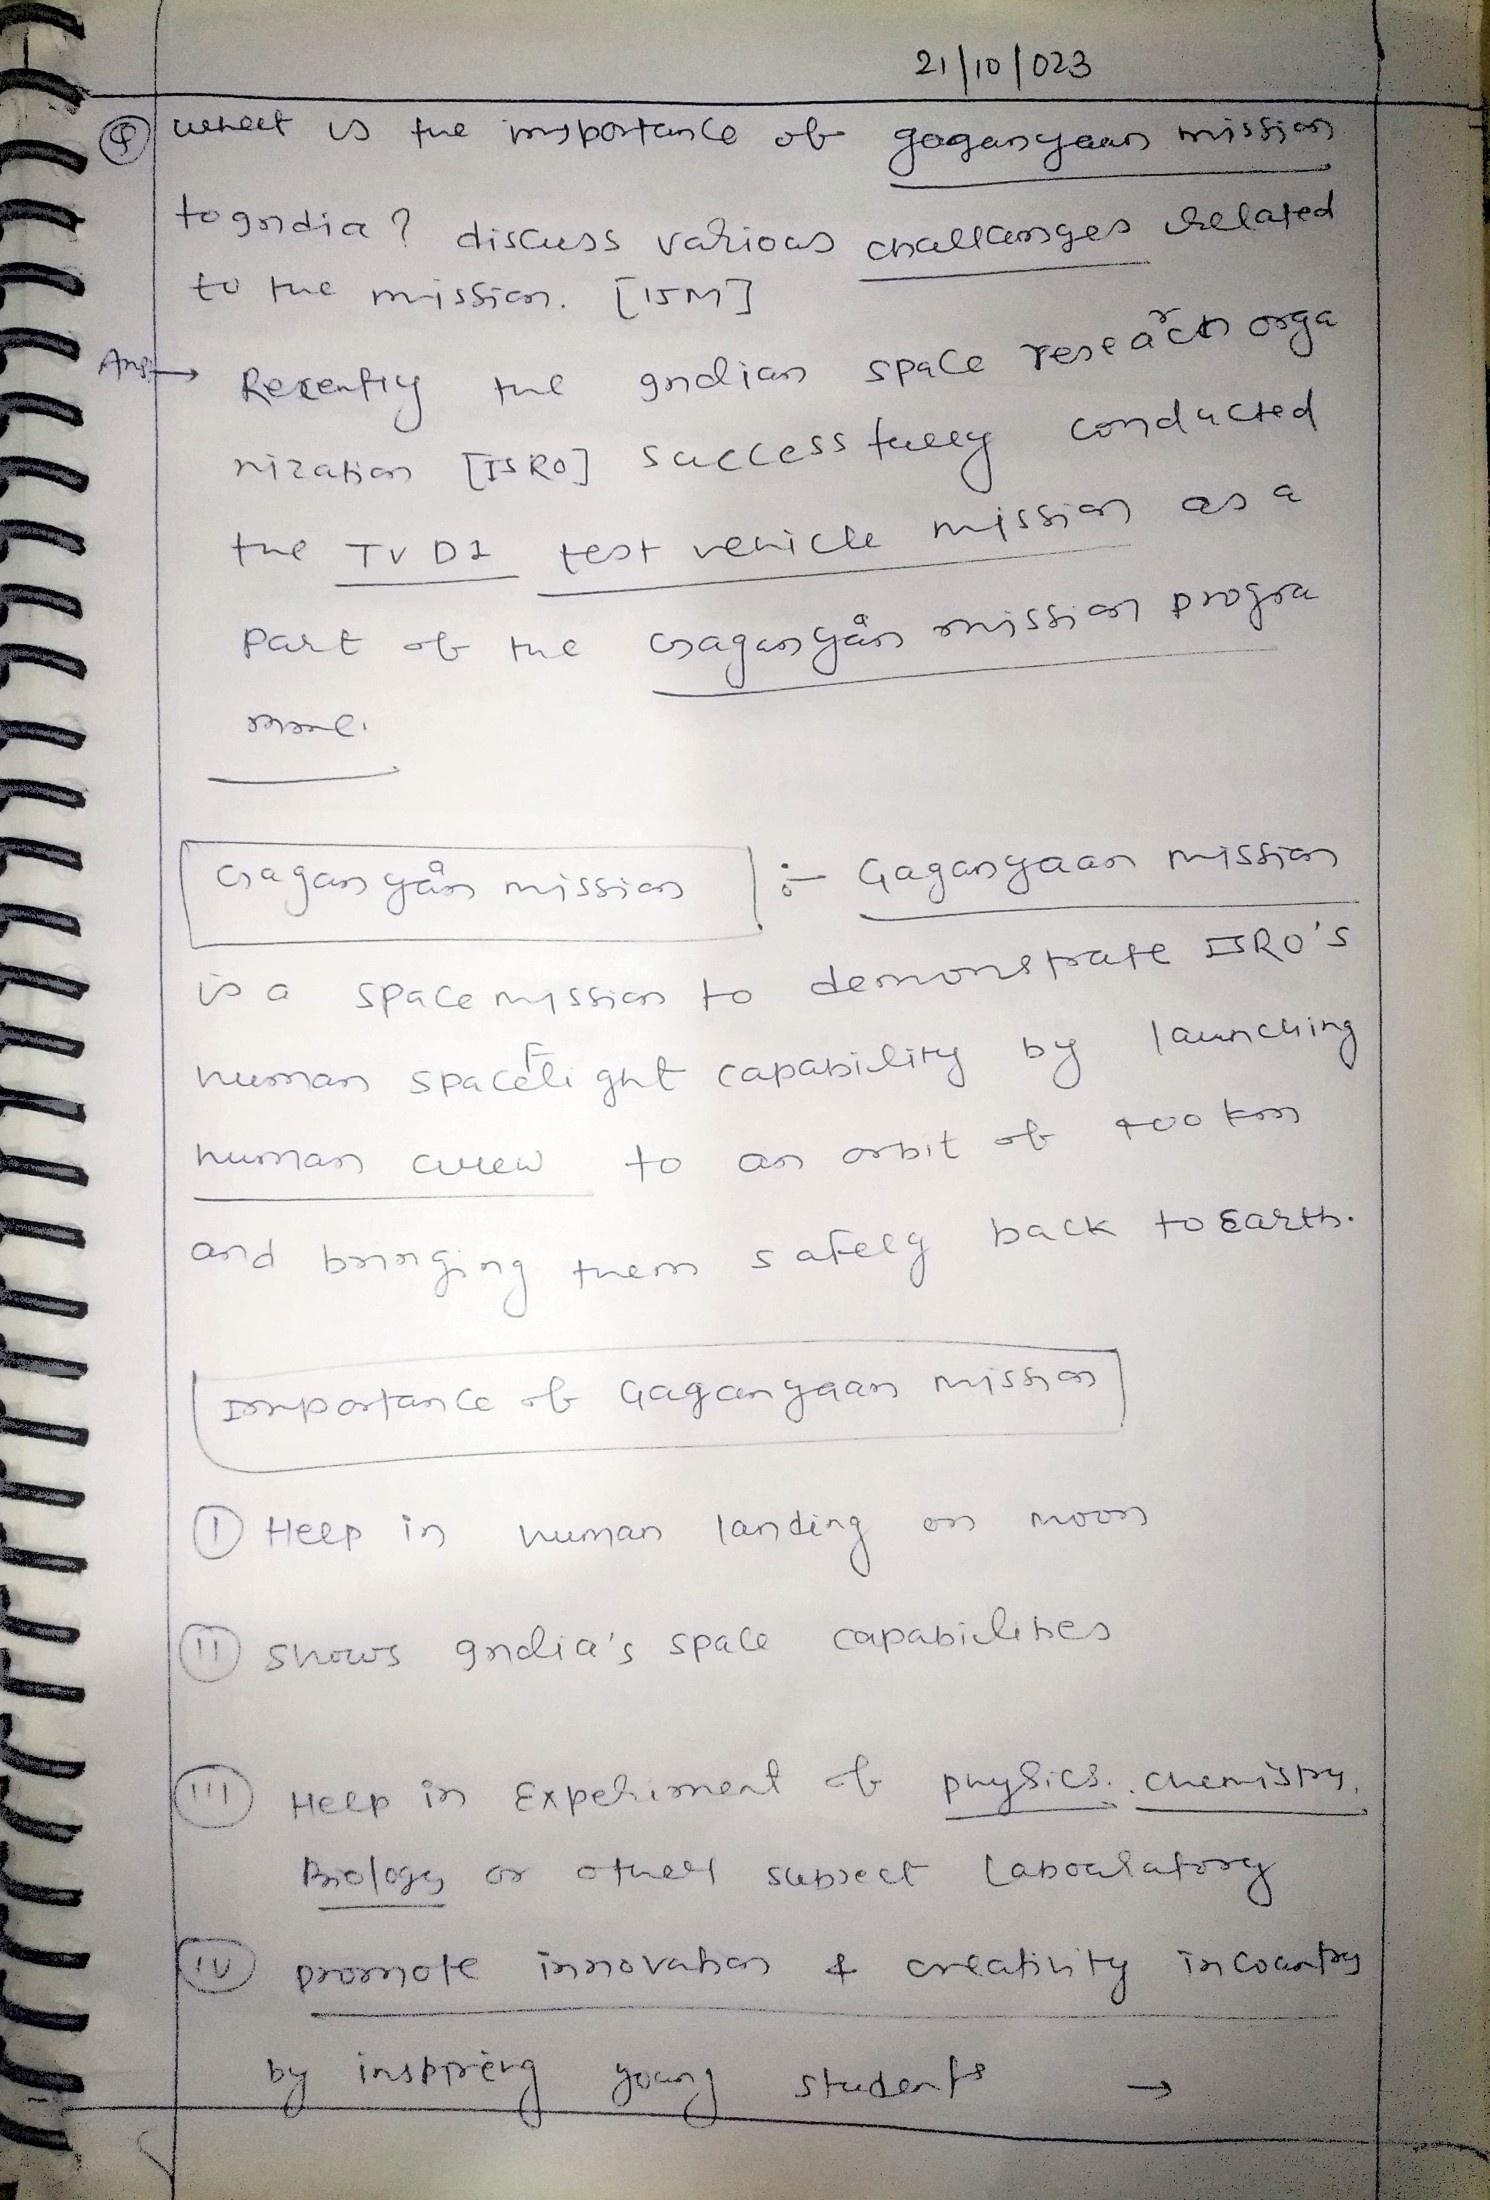 21/10/023
Q What is the importance of gaganyaan mission
to India? discuss various challenges related
to the mission. [15M]
Ans → Recently the Indian space research orga
nization [ISRO] successfully conducted
the TV D1 test vehicle mission as a
part of the Gaganyån mission progra
mme.
Gaganyån mission :- Gaganyaan mission
is a space mission to demonstrate ISRO's
human spaceflight capability by launching
human crew to an orbit of 400 km
and bringing them safely back to Earth.
Importance of Gaganyaan mission
(i) Help in human landing on moon
(ii) Shows India's space capabilities
(iii) Help in Experiment of physics, chemistry,
Biology or other subject Laboratory
(iv) promote innovation & creativity in country
by inspiring young students →